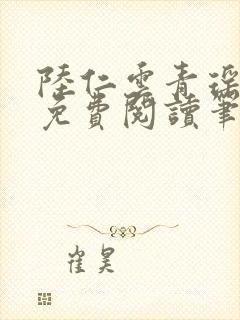 陸仁雲青瑶
免費閱讀筆
崔昊